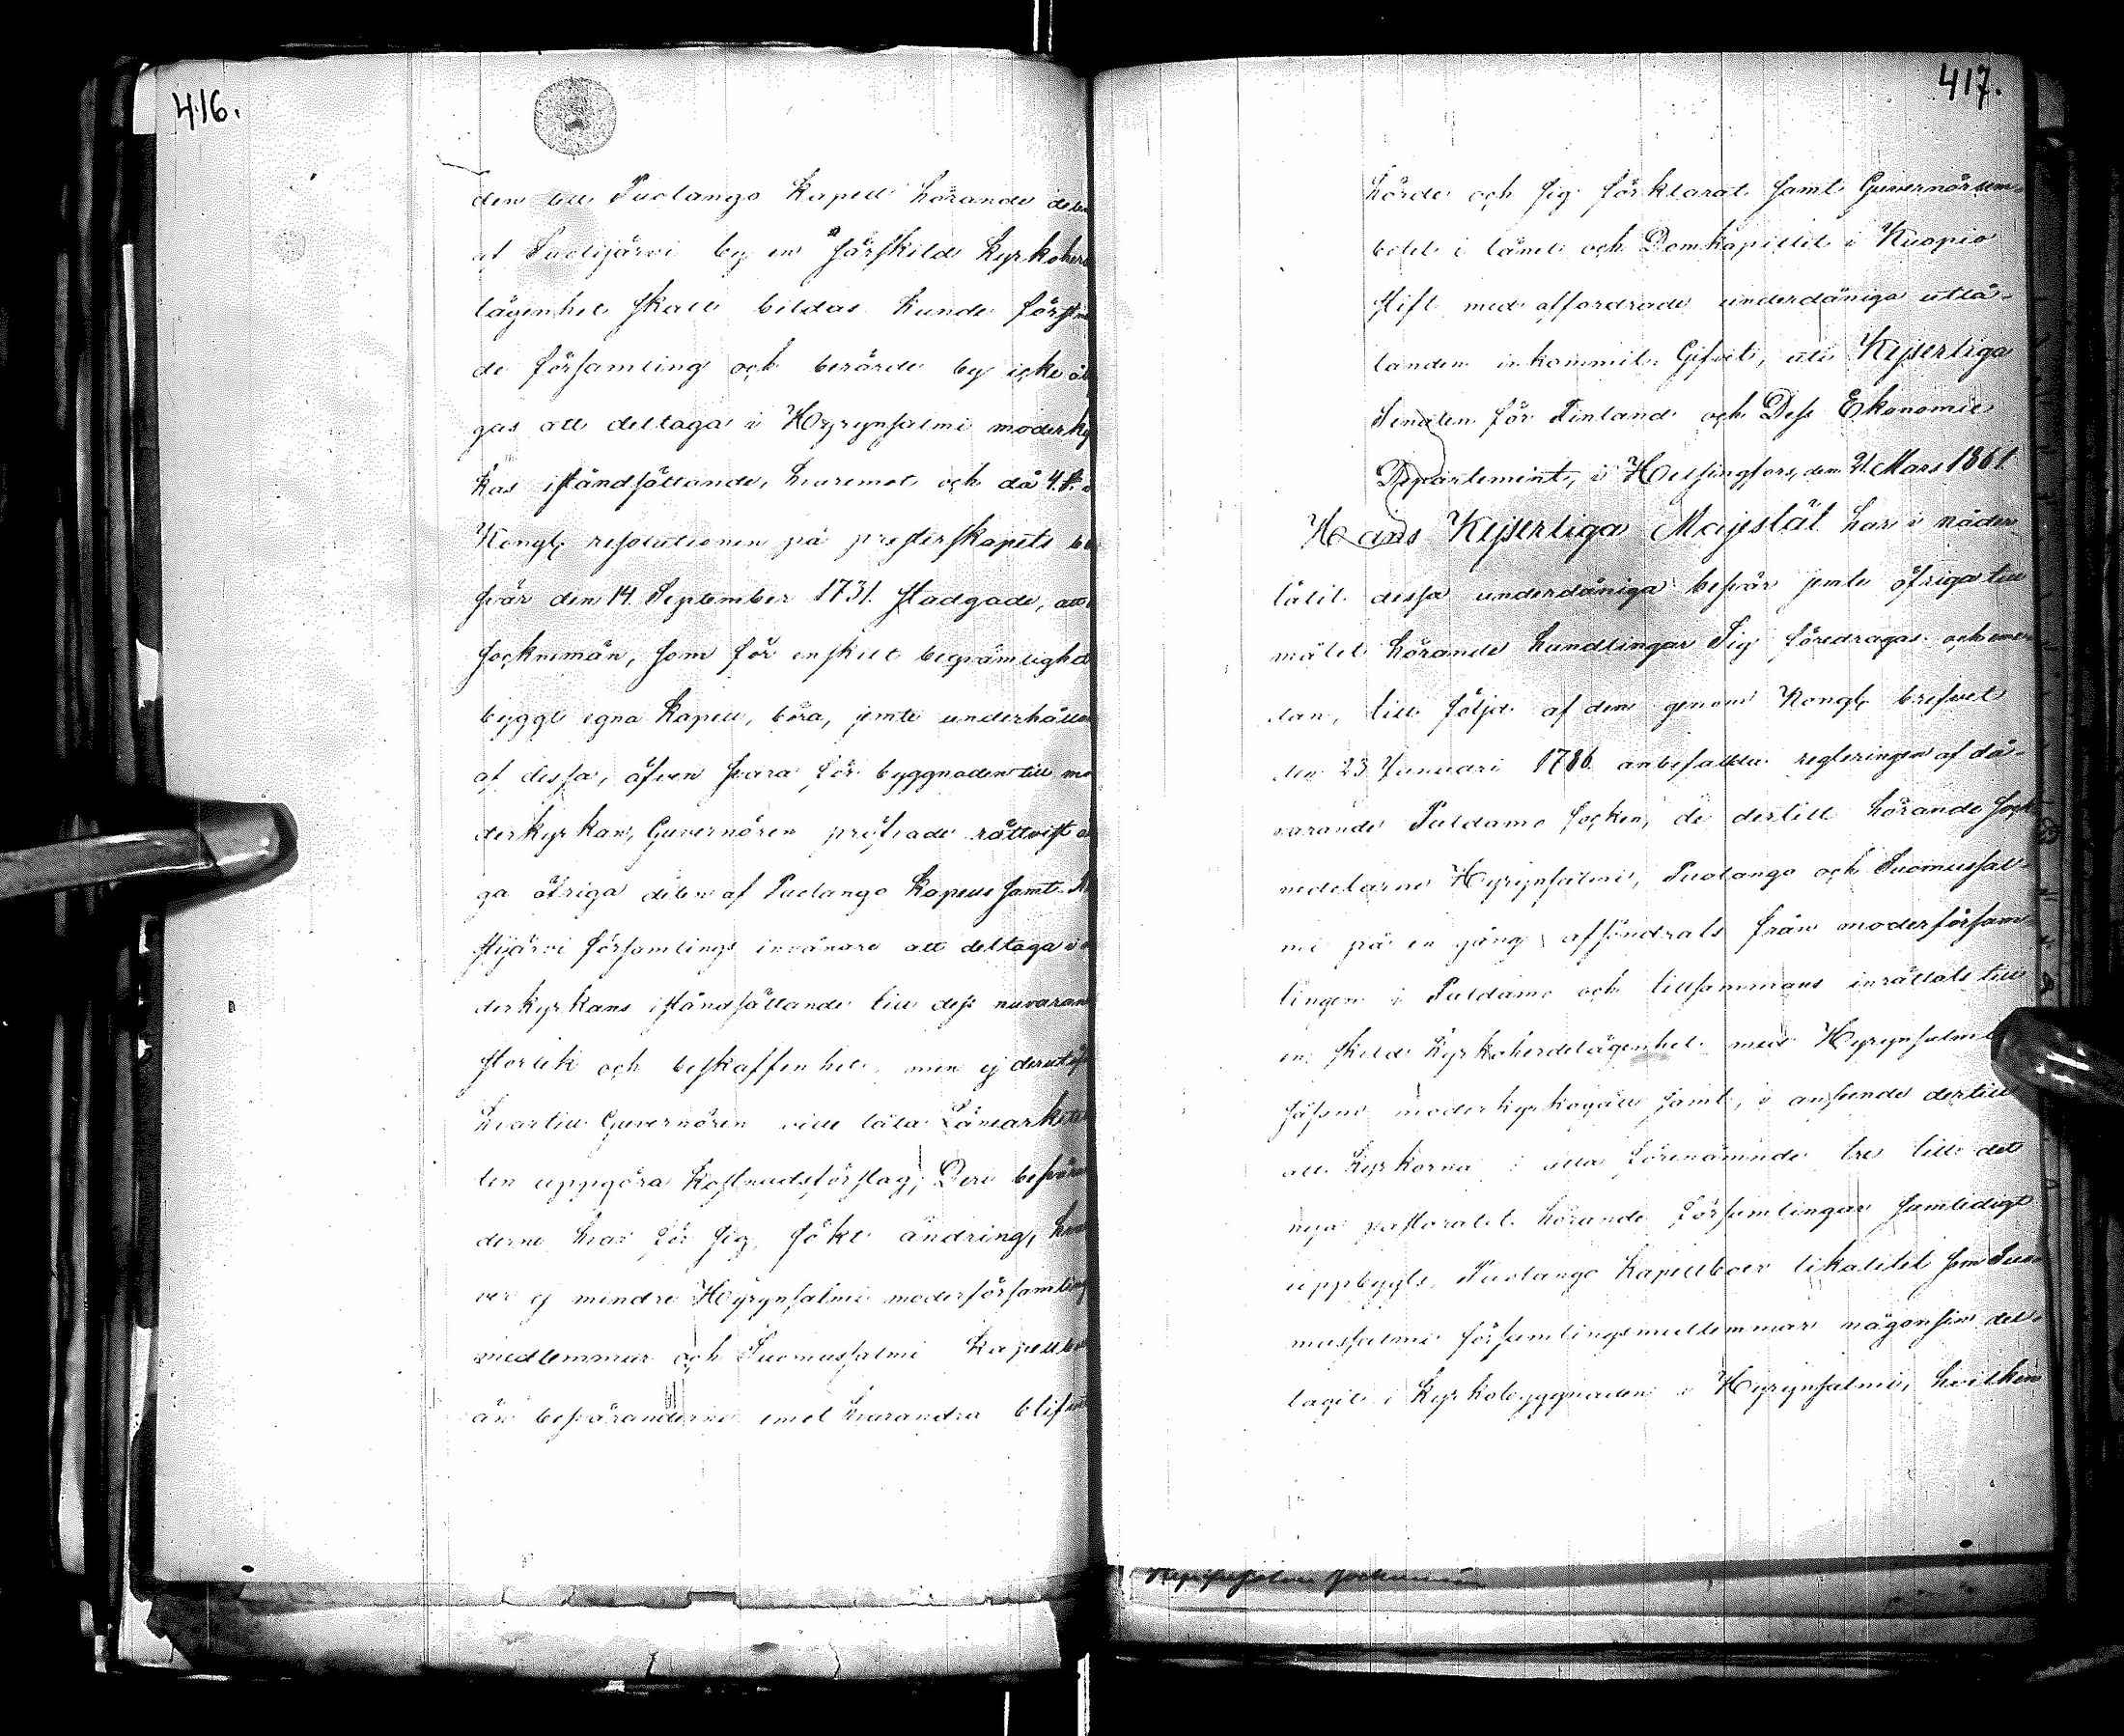 416.
den till Puolango Kapell hörande delen
af Puolijärvi by en särskild Kyrkoher
lägenhet skall bildas kunde förstnä
de församling och berörde by icke ål
gas att deltaga i Hyrynsalmi moderky
kas iståndsättande, hvaremot och då 4. §. i
Kongl. resolutionen på presterskapets be
svär den 14 September 1731. stadgade, att
sockenmän, som för enskilt beqvämlighet
byggt egna Kapell, böra, jemte underhållet
af dessa, äfven svara för byggnaden till mo
derkyrkan, Guvernören pröfvade rättvist å
ga öfriga delen af Puolango Kapells samt
stijärvi församlings invånare att deltaga i
derkyrkans iståndsättande till dess nuvaran
storlek och beskaffenhet, men ej derutöf
hvartill Guvernören ville låta Länearkitek
ten uppgöra kostnadsförslag; Deri besvär
derne hvar för sig, sökt ändring, hvar
ver ej mindre Hyrynsalmi moderförsamling
medlemmar och Suomussalmi Kapellbo
än besväranderne emot hvarandra blifvit
417.
hörde och sig förklarat samt Guvernörsem-
betet i länet och Domkapitlet i Kuopio
stift med affordrade underdåniga utlå-
tanden inkommit. Gifvet, uti Kejserliga
Senaten för Finland och Dess Ekonomie
Departement, i Helsingfors, den 21. Mars 1861.
Hans Kejserliga Majestät har i nåder
låtit dessa underdåniga besvär jemte öfriga till
målet hörande handlingar Sig föredragas och eme-
dan, till följd af den genom Kongl. brefvet
den 23 Januari 1786 anbefallda regleringen af då-
varande Paldamo socken, de dertill hörande sock
nedelarne Hyrynsalmi, Puolango och Suomussal-
mi på en gång afsöndrats från moderförsam-
lingen i Paldamo och tillsammans inrättats till
en skild Kyrkoherdelägenhet med Hyrynsalmi
såsom moderkyrkogäll samt, i anseende dertill
att kyrkorna i alla förenämnde tre till det
nya pastoratet hörande församlingar samtidigt
uppbyggts, Puolango Kapellboer likalitet som Suo-
mussalmi församlingsmedlemmar någonsin del-
tagit i kyrkobyggnaden i Hyrynsalmi, hvilken